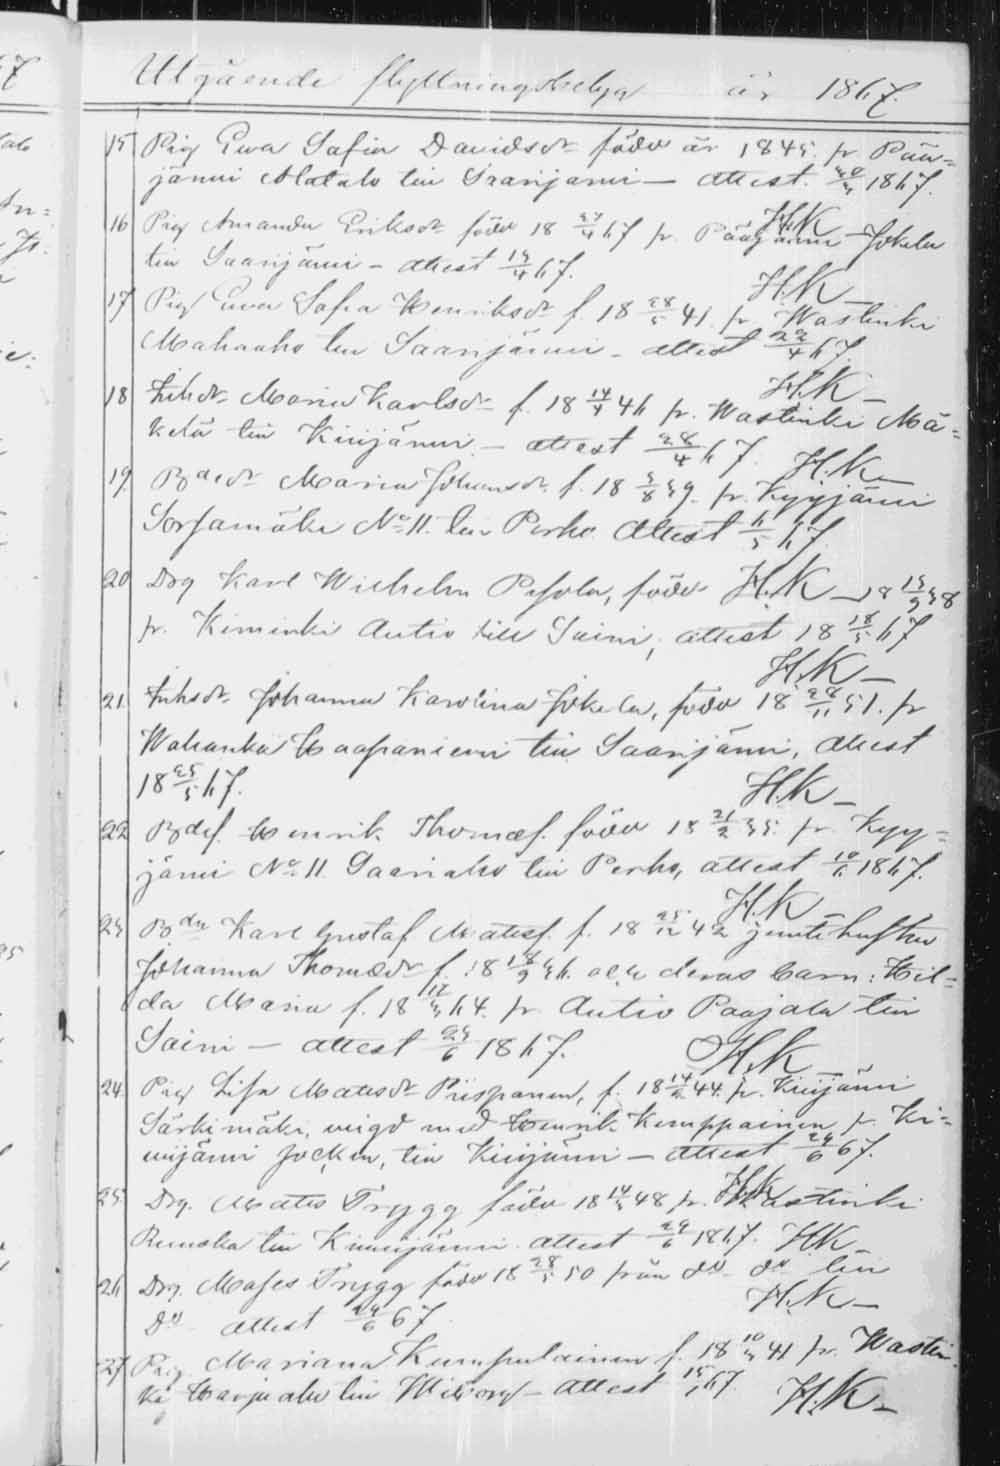 Utgående flyttningsbetyg år 1867.
15 Pig Ewa Sofia Davidsdr född år 1845. fr. Pää=
jänni Alatalo till Saarijärvi — attest. 1867.
H.K
16 Pig Amanda Eriksdr född 18 47 fr. Pääjänni Jokela
till Saarijärvi — attest 19/4 67.
H.K
17 Pig Ewa Sofia Henriksdr f. 18 28/5 41. fr. Wastinki
Mahaaho till Saarijärvi — attest 22/4 67.
H.K —
18 Inhdr Maria Karlsdr f. 18 14/4 46 fr. Wastinki Mä=
kelä till Kivijärvi — attest 28/4 67. H.K —
19. Bdedr Maria Johansdr f. 18 39. fr. Kyyjärvi
Sorsamäki No 11. till Perho attest 6/5 67.
20 Drg Karl Wilhelm Pesola, född H.K — 18 15/9 38
fr. Kiminki Autio till Saini, attest 18 18/5 67
H.K —
21 Inhsdr Johanna Karolina Jokela, född 18 28/11 51. fr
Wahanka Haapaniemi till Saarijärvi, attest
18 25/5 67.
H.K —
22 Bdes. Henrik Thomæs. född 18 21/2 35 fr. Kyy=
järvi No 11 Saariaho till Perho, attest 10/6 1867.
H.K —
23 Bdn Karl Gustaf Matss. f. 18 25/12 42 jemte hustru
Johanna Thomædr f. 18 18/9 36. och deras barn: Hil=
da Maria f. 18 12/3 64. fr. Autio Paajala till
Saini — attest 23/6 1867.
H.K —
24. Pig Lisa Matsdr Piispanen, f. 18 14/2 44. fr. Kivijärvi
Särkimäki, vigd med Henrik Kemppainen fr. Ki=
vijärvi socken, till Kivijärvi — attest 24/6 67.
H.K
25. Drg. Mats Trygg född 18 14/3 48 fr. Wastinki
Ruuska till Kivijärvi attest 29/6 1867. H.K —
26 Drg. Moses Trygg född 18 28/5 50 från do do till
do attest 29/6 67
H.K —
27 Pig Mariana Kumpulainen f. 18 10/3 41 fr. Wastin-
ki Harjualu till Wiborg — attest 67.
H.K —